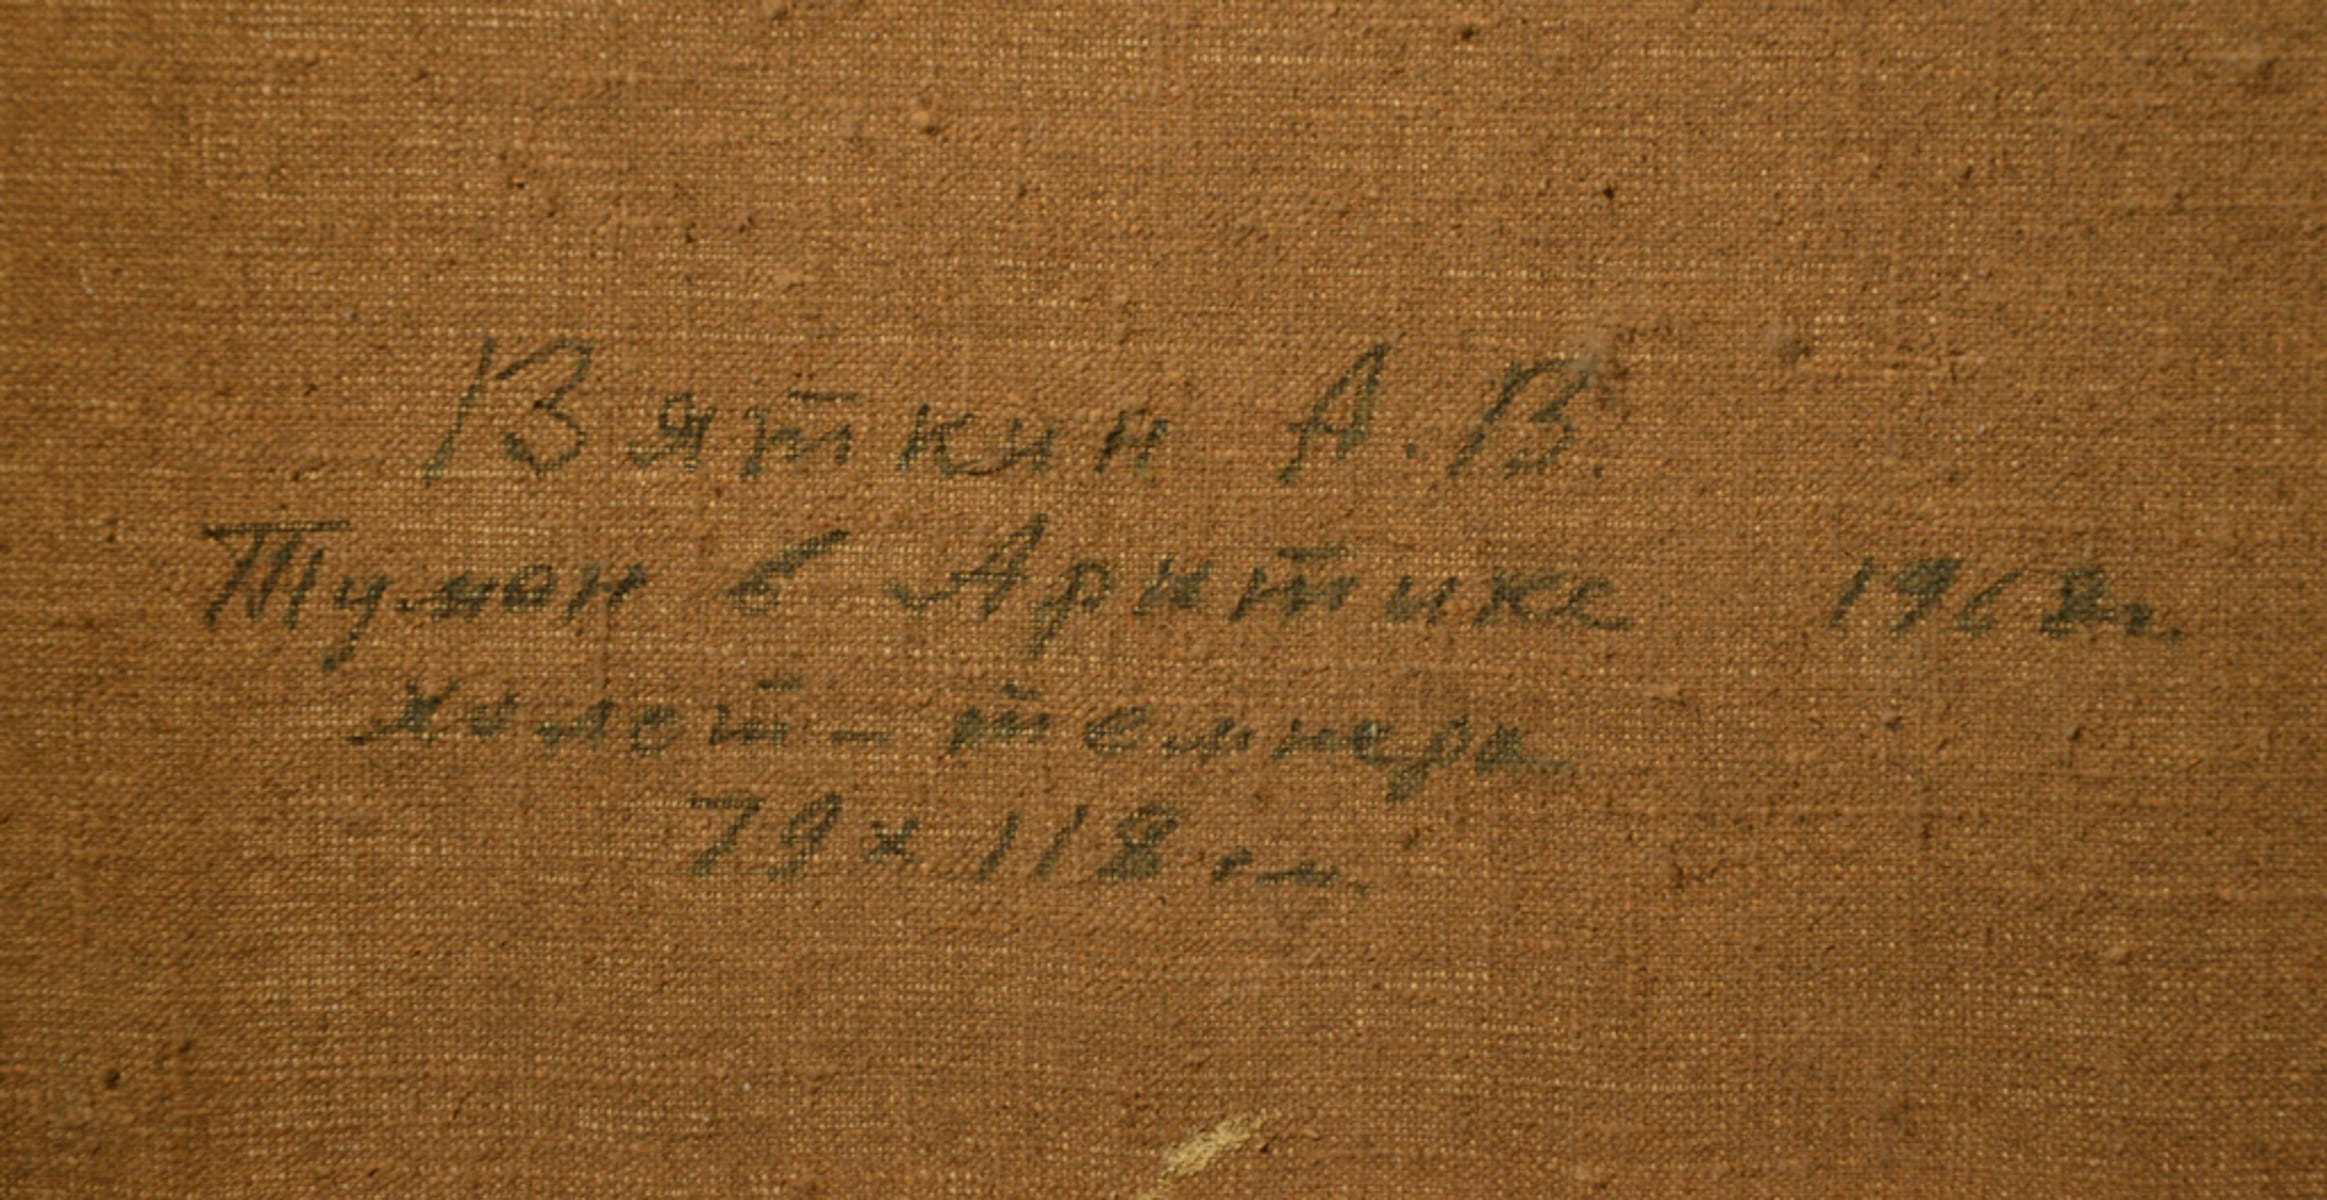 Вяткин А.В.
Туман в Арктике 1968г.
холст - темпера
79 х 118 см.